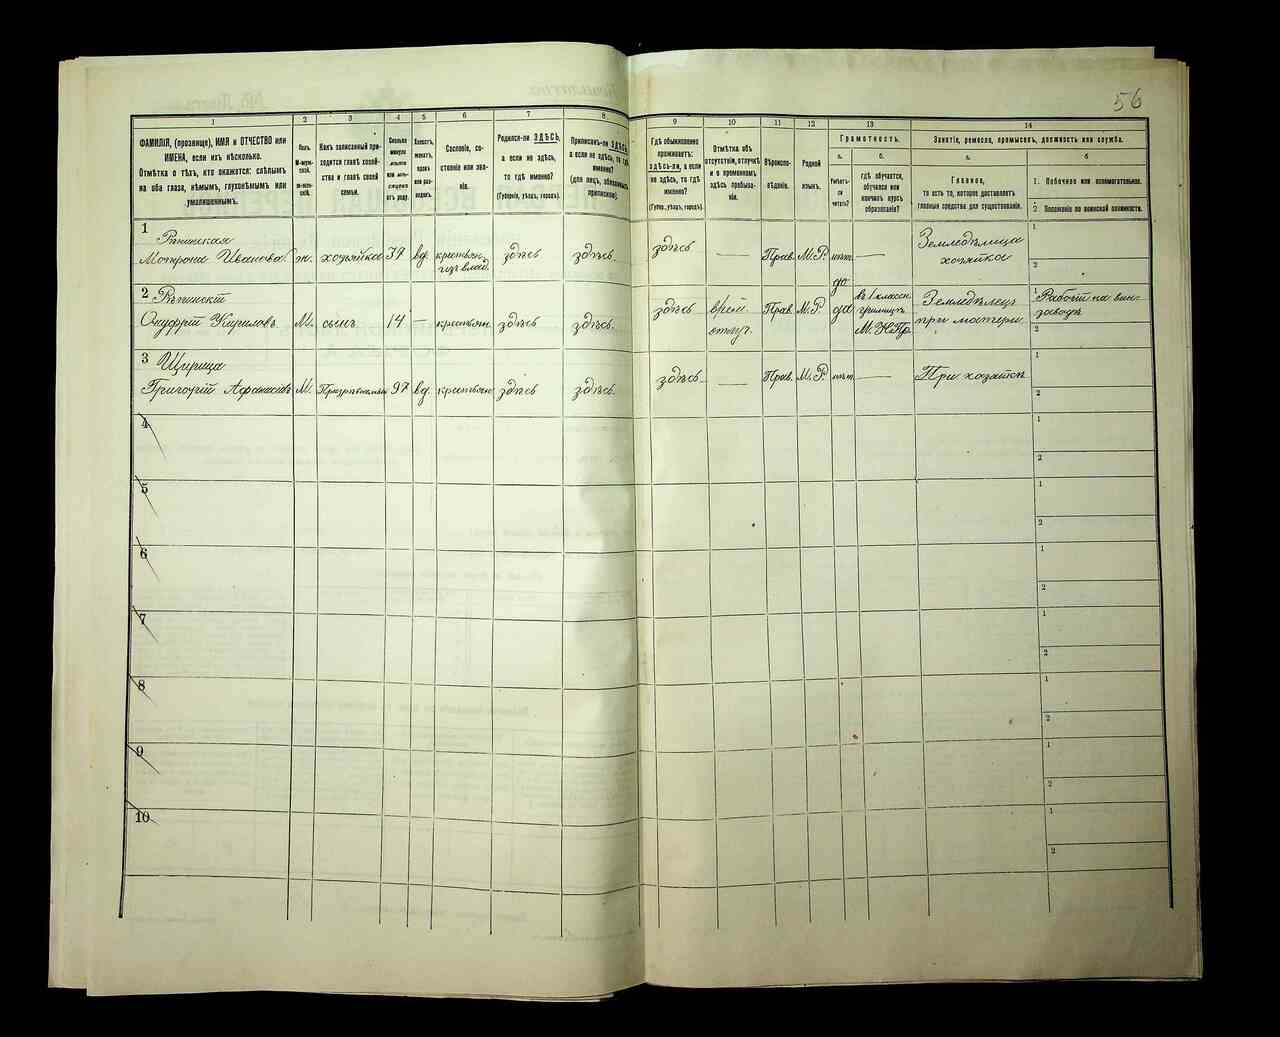 56
1
2
3
4
5
6
7
8
9
10
11
12
13
14
ФАМИЛІЯ, (прозвище), ИМЯ и ОТЧЕСТВО или
ИМЕНА, если ихъ нѣсколько.
Отмѣтка о тѣхъ, кто окажется: слѣпымъ
на оба глаза, нѣмымъ, глухонѣмымъ или
умалишеннымъ.
Полъ.
М-муж-
ской.
Ж-жен-
скій.
Какъ записанный при-
ходится главѣ хозяй-
ства и главѣ своей
семьи.
Сколько
минуло
лѣтъ
или мѣ-
сяцевъ
отъ роду.
Холостъ,
женатъ,
вдовъ
или раз-
веденъ.
Сословіе, со-
стояніе или зва-
ніе.
Родился-ли ЗДѢСЬ,
а если не здѣсь,
то гдѣ именно?
(Губернія, уѣздъ, городъ).
Приписанъ-ли ЗДѢСЬ,
а если не здѣсь, то гдѣ
именно?
(для лицъ, обязанныхъ
припискою).
Гдѣ обыкновенно
проживаетъ:
здѣсь-ли, а если
не здѣсь, то гдѣ
именно?
(Губер., уѣздъ, городъ).
Отмѣтка объ
отсутствіи, отлучкѣ
и о временномъ
здѣсь пребыва-
ніи.
Вѣроиспо-
вѣданіе.
Родной
языкъ.
Грамотность.
а.
Умѣетъ-
ли
читать?
б.
гдѣ обучается,
обучался или
кончилъ курсъ
образованія?
Занятіе, ремесло, промыселъ, должность или служба.
а.
Главное,
то есть то, которое доставляетъ
главныя средства для существованія.
б
1. Побочное или вспомогательное.
2 Положеніе по воинской повинности.
1 Рѣпинская
Матрона Иванова. ж. хозяйка 39 вд. крестьян. изъ влад. здѣсь здѣсь. здѣсь — Прав. М.Р. нѣт. — Земледѣлица хозяйка 1 2
2 Рѣпинскій
Онуфрій Кирилловъ М. сынъ 14 — крестьян. здѣсь здѣсь. здѣсь врем. отлуч. Прав. М.Р. да до въ 1 классн. училищѣ М.Н.Пр. Земледѣлецъ при матери 1 2
3 Щирица
Григорій Афанасьевъ М. 97 вд. крестьян здѣсь здѣсь. здѣсь — Прав. М.Р. нѣт. — При хозяйкѣ 1 2
4 1 2
5 1 2
6 1 2
7 1 2
8 1 2
9 1 2
10 1 2